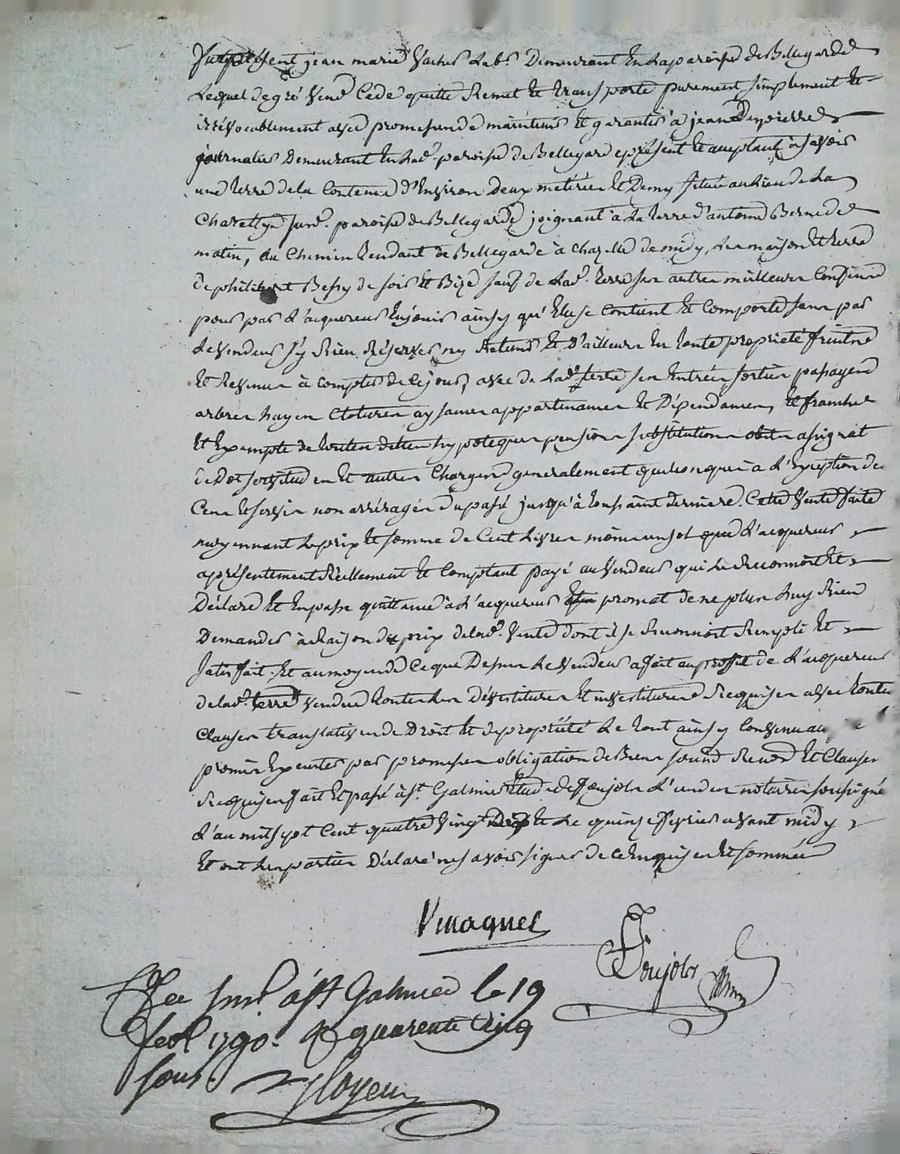 Fut présent jean marie Vacher Labr. Demeurant En La paroisse de Bellegarde
Lequel de gré Vend Cede quitte Remet Et transporte purement simplement Et
irrévocablement avec promesse de maintenir Et garantir à jean Depierre
journalier Demeurant En Lad. paroisse de Bellegarde présent Et acceptant à savoir
une terre de la Contenue d'Environ Deux metérée Et Demy située au Lieu de La
Charettyé sur. paroisse de Bellegarde joignant à La terre d'antoine Berne de
matin, du Chemin tendant de Bellegarde à Chazelle de midy, La maison Et terre
de philibert Bessy de soir Et Bize sauf de Lad. terre ses autres meilleurs Confins
pour par L'acquereur En jouir ainsy qu'Elle se Contient Et Comporte sans par
Le Vendeur s'y Rien Réserver ny Retenir Et D'ailleurs En toute propriété fruits
Et Revenus à Compter de Ce jour, avec de Lad. terre ses Entrées sorties passages
arbres hayes Clotures aysances appartenances Et Dépendances, Et franche
Et Exempte de toutes dettes hypoteques pensions substitutions obits assignat
de Dot servitudes Et autres Charges generalement quelconques à L'Exception des
Cens Et servis non arréragés du passé jusqu'à toussaint derniere. Cette Vente faite
moyennant Le prix Et somme de Cent Livres moins un sol que L'acquereur
a présentement Réellement Et Comptant payé au Vendeur qui Le Reconnoit Et
Déclare Et En passe quittance à L'acquereur promet de ne plus Luy Rien
Demander à Raison du prix de lad. Vente dont il se Reconnoit Rempli Et
satisfait, Et au moyen de Ce que Dessus Le Vendeur a fait au profit de L'acquereur
de lad. terre Vendue toutes Les Dévestitures Et investitures Requises avec toutes
Clauses translatives de Droit Et de propriété Le tout ainsy Convenu a
promis Executer par promesses obligation de Biens sound Renond Et Clauses
Requises fait Et passé à St. Galmier Etude de Poujols L'un des notaires soussigné
L'an mil sept Cent quatre Vingt Dix Et Le quinze fevrier avant midy
Et ont Les parties Déclaré ne savoir signer de Ce Enquises Et sommées
Vinagner
Poujols
Cee Inné à St Galmier le 19
fevr. 1790. R quarente Cinq
sous.